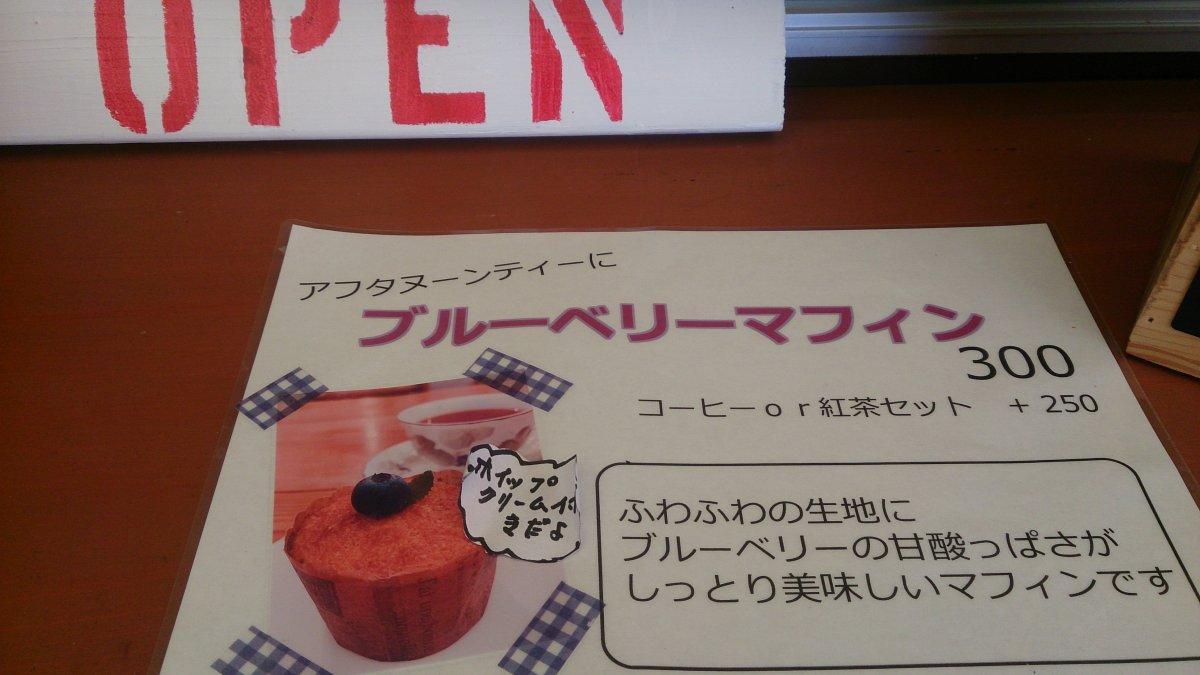 OPEN
アフタヌーンティーに
ブルーベリーマフィン
300
コーヒーor紅茶セット +250
ホイップ
クリーム付
きだよ
ふわふわの生地に
ブルーベリーの甘酸っぱさが
しっとり美味しいマフィンです